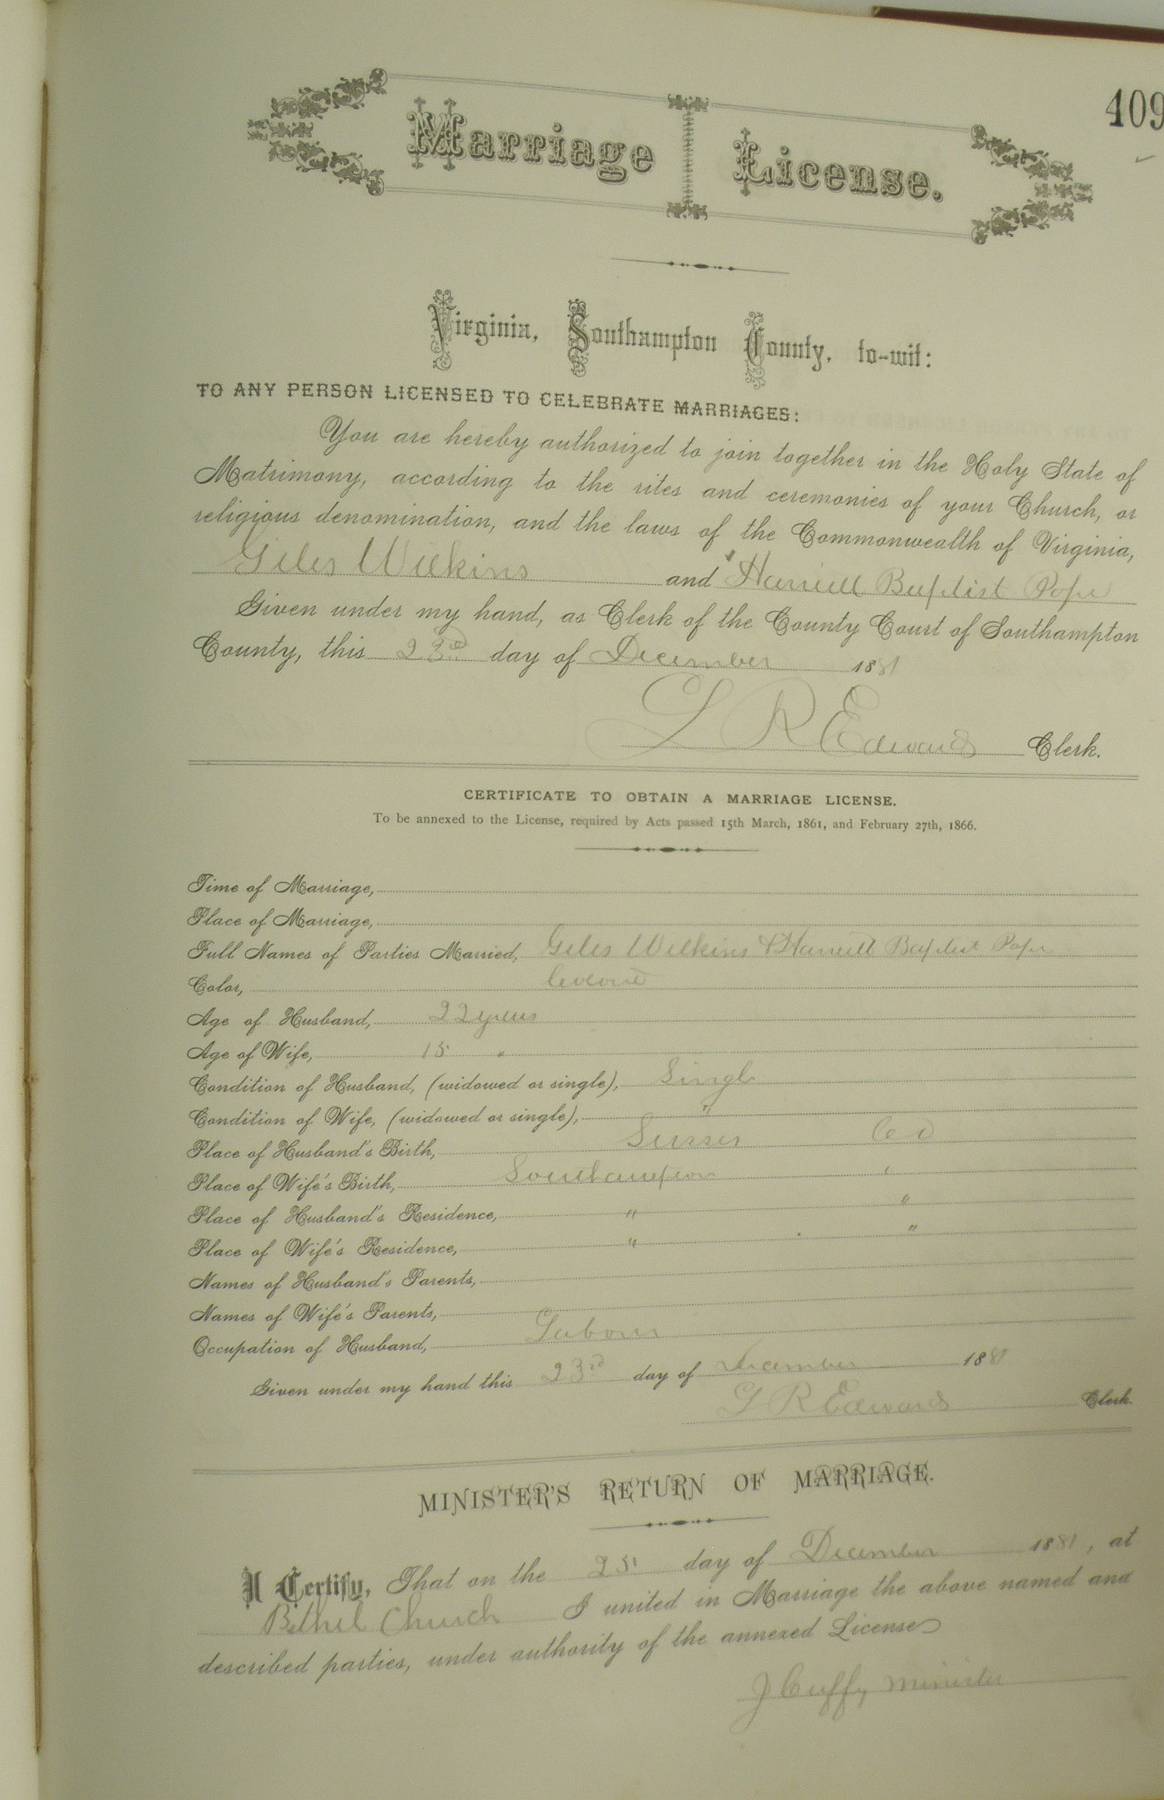 409
Marriage License.
Virginia, Southampton County, to-wit:
TO ANY PERSON LICENSED TO CELEBRATE MARRIAGES:
You are hereby authorized to join together in the Holy State of
Matrimony, according to the rites and ceremonies of your Church, or
religious denomination, and the laws of the Commonwealth of Virginia,
Giles Wilkins and Harriett Baptist Pope
Given under my hand, as Clerk of the County Court of Southampton
County, this 23rd day of December 1881
L R Edwards Clerk.
CERTIFICATE TO OBTAIN A MARRIAGE LICENSE.
To be annexed to the License, required by Acts passed 15th March, 1861, and February 27th, 1866.
Time of Marriage,
Place of Marriage,
Full Names of Parties Married, Giles Wilkins & Harriett Baptist Pope
Color, Colored
Age of Husband, 22 years
Age of Wife, 15 "
Condition of Husband, (widowed or single), Single
Condition of Wife, (widowed or single), "
Place of Husband's Birth, Sussex Co
Place of Wife's Birth, Southampton "
Place of Husband's Residence, " "
Place of Wife's Residence, " "
Names of Husband's Parents,
Names of Wife's Parents,
Occupation of Husband, Labour
Given under my hand this 23rd day of December 1881
L R Edwards Clerk.
MINISTER'S RETURN OF MARRIAGE.
I Certify, That on the 25 day of December 1881, at
Bethel Church I united in Marriage the above named and
described parties, under authority of the annexed License
J Cuffy minister